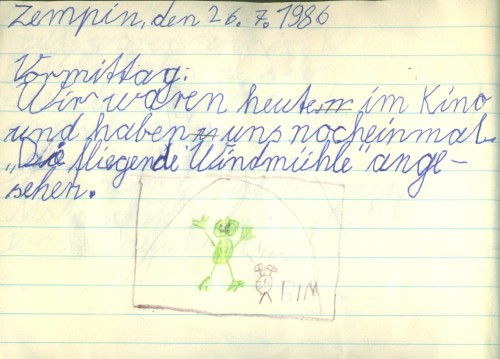 Zempin, den 26.7.1986
Vormittag:
Wir waren heute im Kino
und haben uns nocheinmal
„Die fliegende Windmühle" ange-
sehen.
БІМ